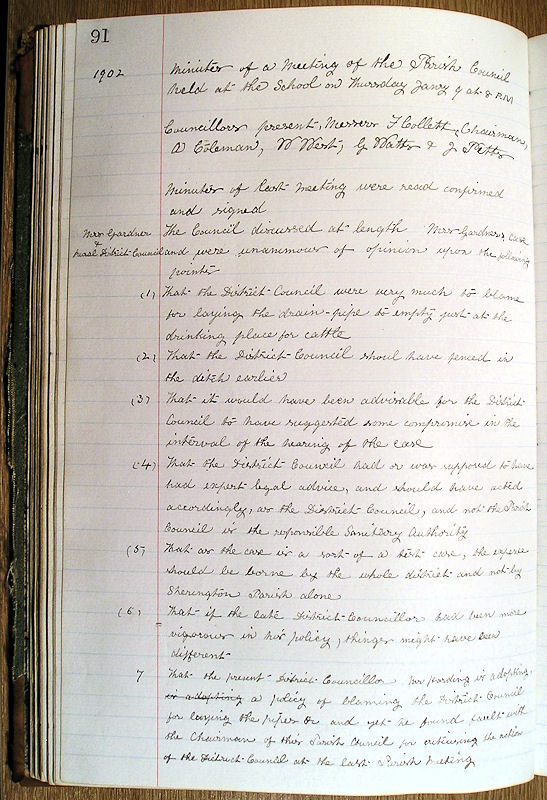 91
1902
Minutes of a Meeting of the Parish Council
held at the School on Thursday Jany 9 at 8 P.M
Councillors present, Messrs F Collett, Chairman,
A Coleman, W West, G Watts & J Petts
Minutes of last meeting were read confirmed
and signed
Mrs Gardner
&
Rural District Council
The Council discussed at length Mrs Gardner's case
and were unanimous of opinion upon the following
points
(1) That the District Council were very much to blame
for laying the drain-pipe to empty just at the
drinking place for cattle
(2) That the District Council shoul have fenced in
the ditch earlier
(3) That it would have been advisable for the District
Council to have suggested some compromise in the
interval of the hearing of the case
(4) That the District Council had or was supposed to have
had expert legal advice, and should have acted
accordingly, as the District Council, and not the Parish
Council is the responsible Sanitary Authority
(5) That as the case is a sort of a test case, the expense
should be borne by the whole district and not by
Sherington Parish alone
(6) That if the late District Councillor had been more
vigorous in his policy, things might have been
different
7 That the present District Councillor is adopting
is adopting a policy of blaming the District Council
for laying the pipes &c and yet he found fault with
the Chairman of this Parish Council for criticising the action
of the District Council at the last Parish Meeting